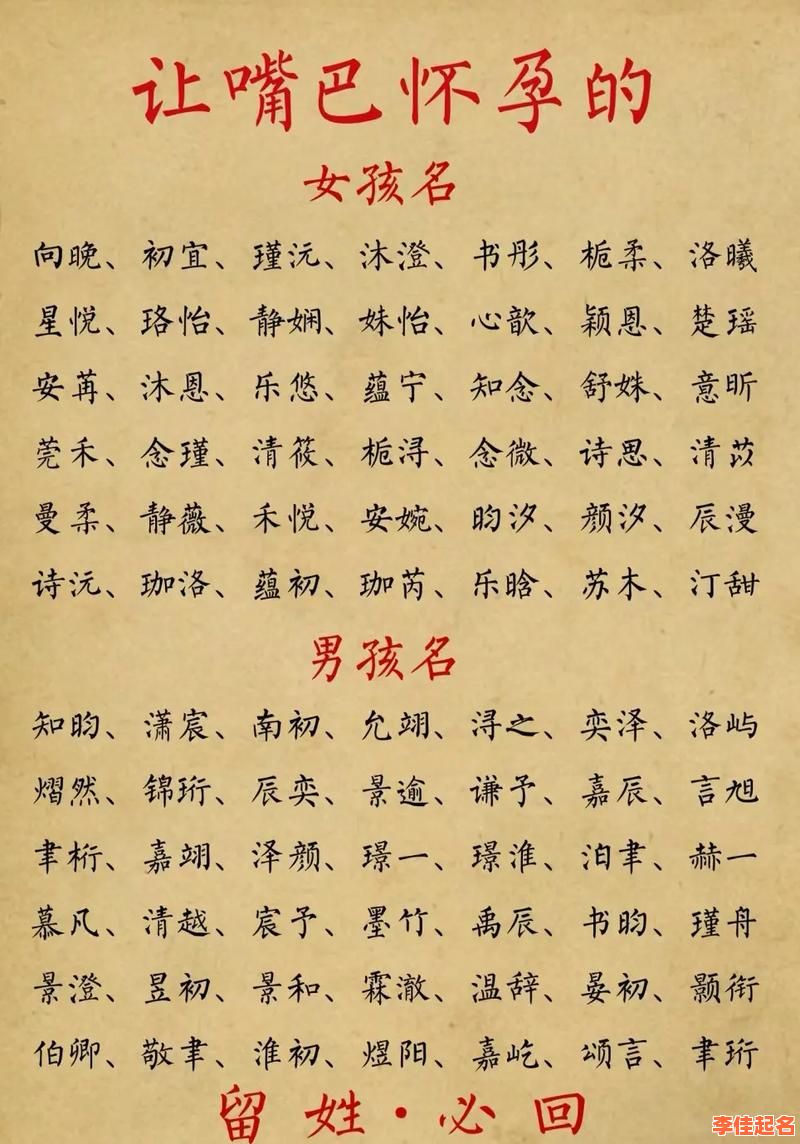 让嘴巴怀孕的
女孩名
向晚、初宜、瑾沅、沐澄、书彤、栀柔、洛曦
星悦、珞怡、静娴、姝怡、心歆、颖恩、楚瑶
安苒、沐恩、乐悠、蕴宁、知念、舒姝、意昕
莞禾、念瑾、清筱、栀浔、念微、诗思、清苡
曼柔、静薇、禾悦、安婉、昀汐、颜汐、辰漫
诗沅、珈洛、蕴初、珈芮、乐晗、苏木、汀甜
男孩名
知昀、潇宸、南初、允翊、浔之、奕泽、洛屿
熠然、锦珩、辰奕、景逾、谦予、嘉辰、言旭
聿桁、嘉翊、泽颜、璟一、璟淮、泊聿、赫一
慕凡、清越、宸予、墨竹、禹辰、书昀、瑾舟
景澄、昱初、景和、霖澈、温辞、晏初、颢衔
伯卿、敬聿、淮初、煜阳、嘉屹、颂言、聿珩
留姓·必回
李佳起名